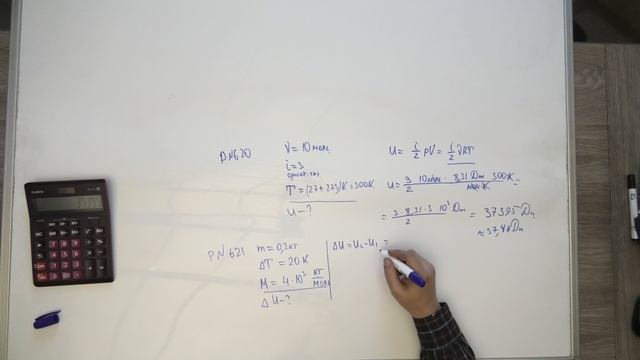 PN620
ν = 10 моль
i = 3
T = (27+273)K = 300K
U – ?
U = i/2 pV = i/2 νRT
U = 3/2 10моль · 8,31 Дж 300K / моль·K =
= 3·8,31·3 10³ Дж / 2 = 37395 Дж
≈ 37,4 кДж
PN621
m = 0,2кг
ΔT = 20K
M = 4·10³ кг/моль
ΔU – ?
ΔU = U₂ – U₁ =